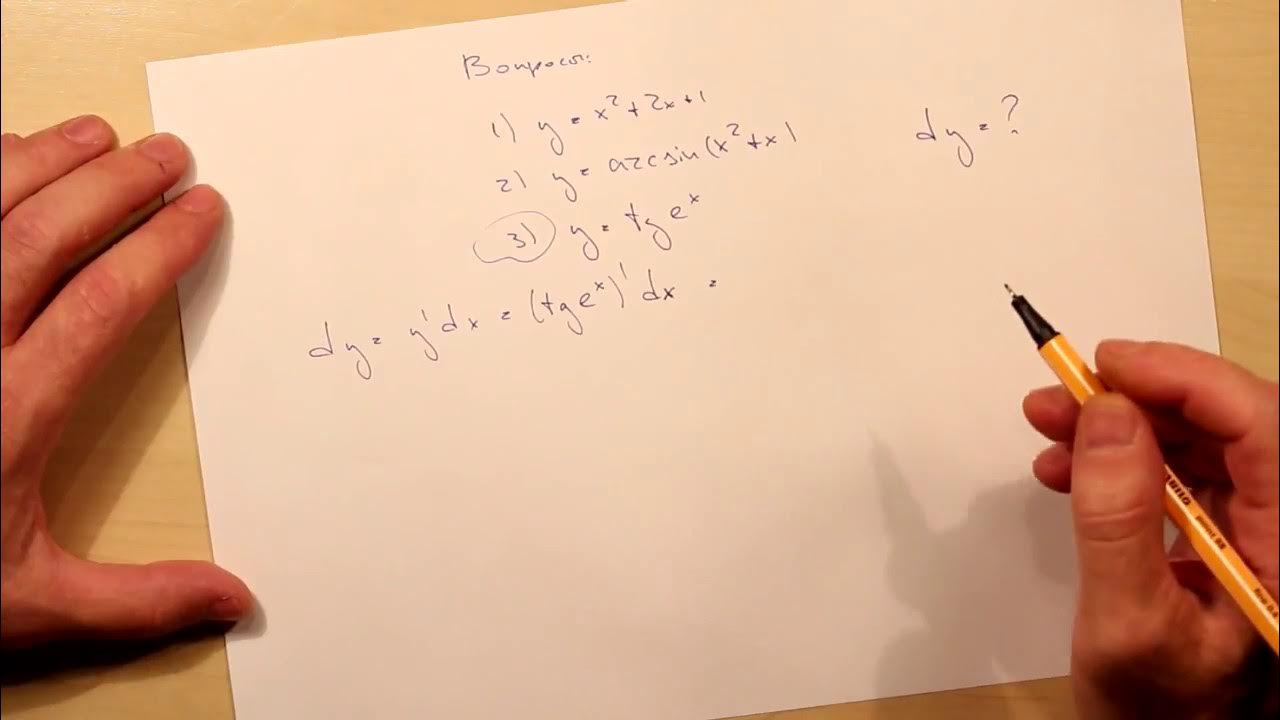 Вопросы:
1) y = x² + 2x + 1
2) y = arcsin(x² + x)
dy = ?
3) y = tg eˣ
dy = y' dx = (tg eˣ)' dx =